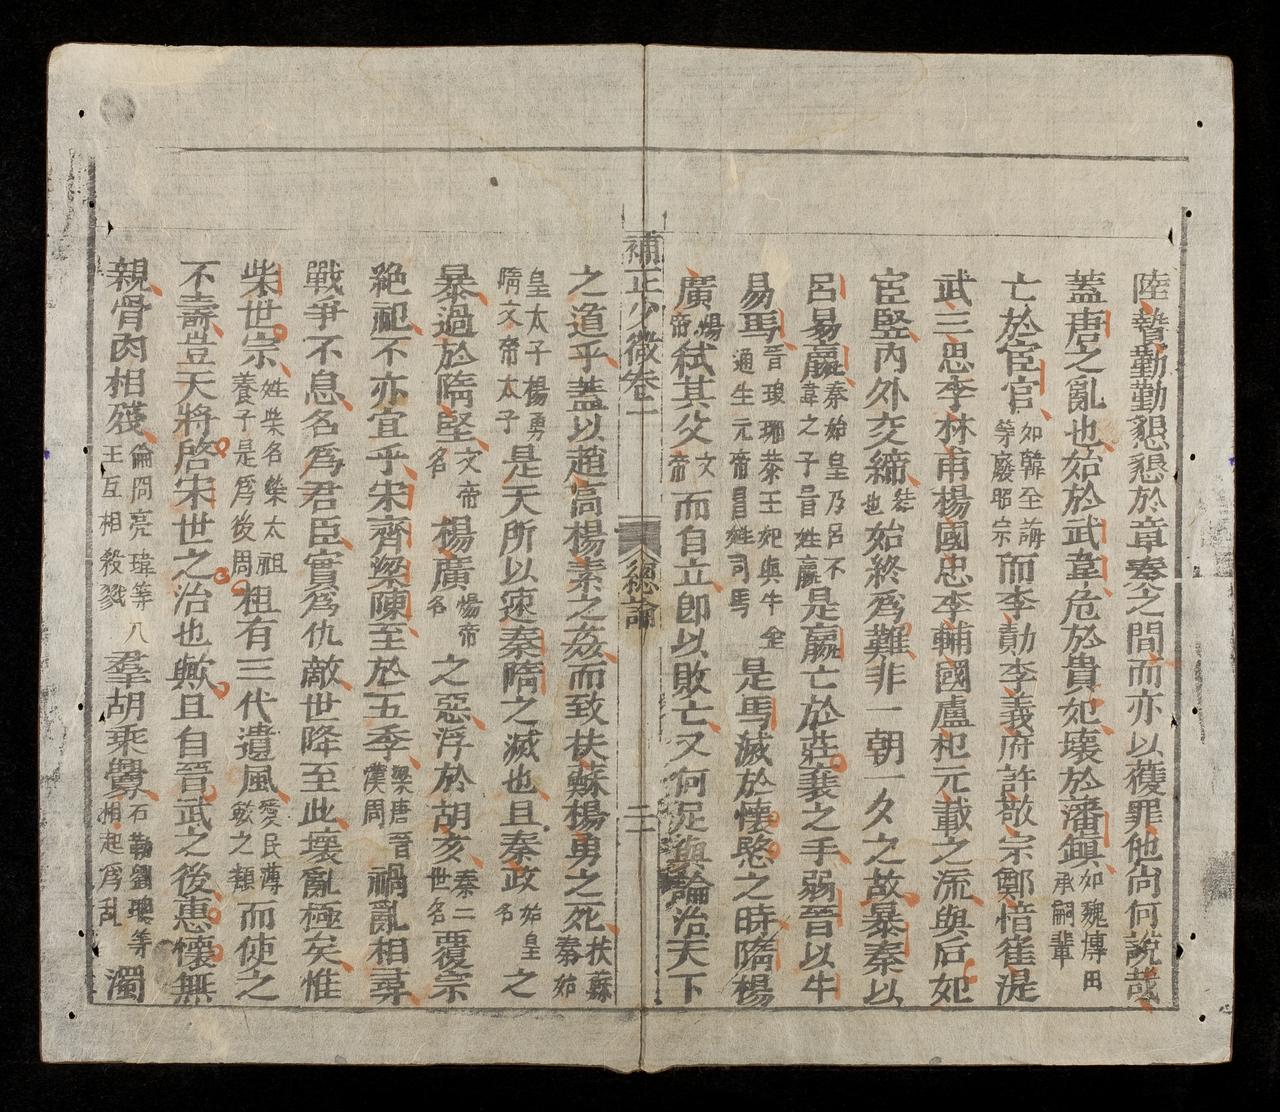 陸贄勤勤懇懇於章奏之間而亦以獲罪他尙何說哉
蓋唐之亂也始於武韋危於貴妃壞於藩鎮如魏博田承嗣輩
亡於宦官如韓全誨等廢昭宗而李勣李義府許敬宗鄭愔崔湜
武三思李林甫楊國忠李輔國盧杞元載之流與后妃
宦竪內外交締結也始終爲難非一朝一夕之故暴秦以
呂易嬴秦始皇乃呂不韋之子冒姓嬴是嬴亡於莊襄之手弱晉以牛
易馬晉瑯琊恭王妃與牛金通生元帝冒姓司馬是馬滅於懷愍之時隋楊
廣煬帝弑其父文帝而自立卽以敗亡又何足與論治天下
補正少微卷一
總論
二
之道乎蓋以趙高楊素之姦而致扶蘇楊勇之死扶蘇秦始
皇太子楊勇隋文帝太子是天所以速秦隋之滅也且秦政始皇名之
暴過於隋堅文帝名楊廣煬帝名之惡浮於胡亥秦二世名覆宗
絶祀不亦宜乎宋齊梁陳至於五季梁唐晉漢周禍亂相尋
戰爭不息名爲君臣實爲仇敵世降至此壞亂極矣惟
柴世宗姓柴名榮太祖養子是爲後周祖有三代遺風愛民薄歛之類而使之
不壽豈天將啓宋世之治也歟且自晉武之後惠懷無
親骨肉相殘倫冏亮瑋等八王互相殺戮羣胡乘釁石勒劉聰等相起爲乱濁